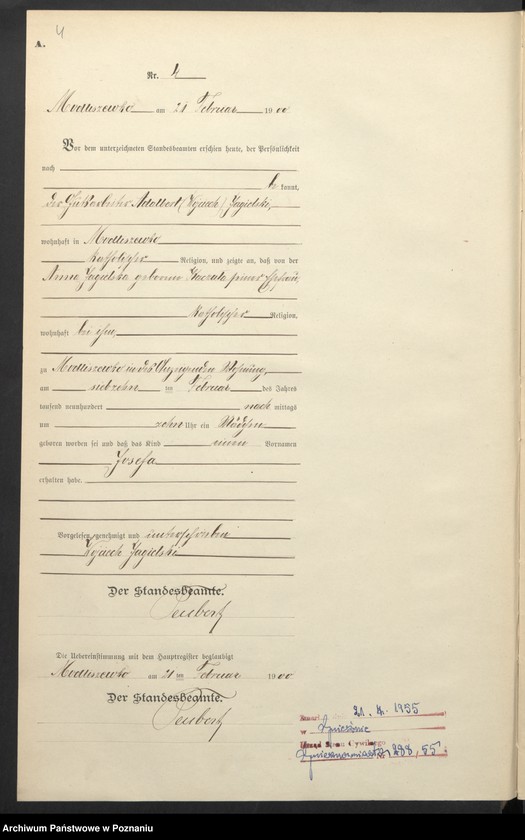 4
A.
Nr. 4
Modliszewko am 21 Februar 1900
Vor dem unterzeichneten Standesbeamten erschien heute, der Persönlichkeit
nach
be kannt,
der Adalbert (Wojciech) Jagielski,
wohnhaft in Modliszewko
katholischer Religion, und zeigte an, daß von der
Anna Jagielska geborene seiner Ehefrau,
katholischer Religion,
wohnhaft bei ihm,
zu Modliszewko in der Wohnung,
am siebzehn ten Februar des Jahres
tausend neunhundert nach mittags
um zehn Uhr ein Mädchen
geboren worden sei und daß das Kind einen Vornamen
Josefa
erhalten habe.
Vorgelesen, genehmigt und unterschrieben
Jagielski
Der Standesbeamte.
Die Uebereinstimmung mit dem Hauptregister beglaubigt
Modliszewko am 21 ten Februar 1900
Der Standesbeamte.
Zmarł 21. 4. 1955
w Gnieźnie
Urząd Stanu Cywilnego
55.
Archiwum Państwowe w Poznaniu